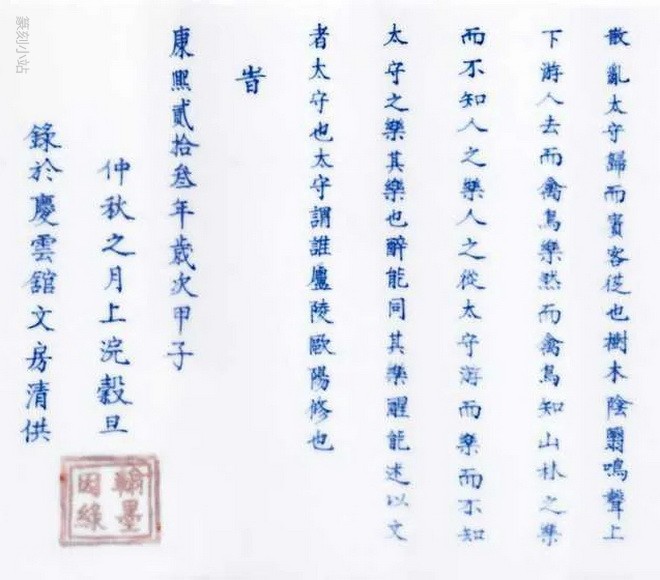 散亂太守歸而賓客從也樹木陰翳鳴聲上
下游人去而禽鳥樂然而禽鳥知山林之樂
而不知人之樂人之從太守游而樂而不知
太守之樂其樂也醉能同其樂醒能述以文
者太守也太守謂誰廬陵歐陽修也
旹
康熙貳拾叁年歲次甲子
仲秋之月上浣穀旦
錄於慶雲舘文房清供
翰墨
因緣
篆刻小站